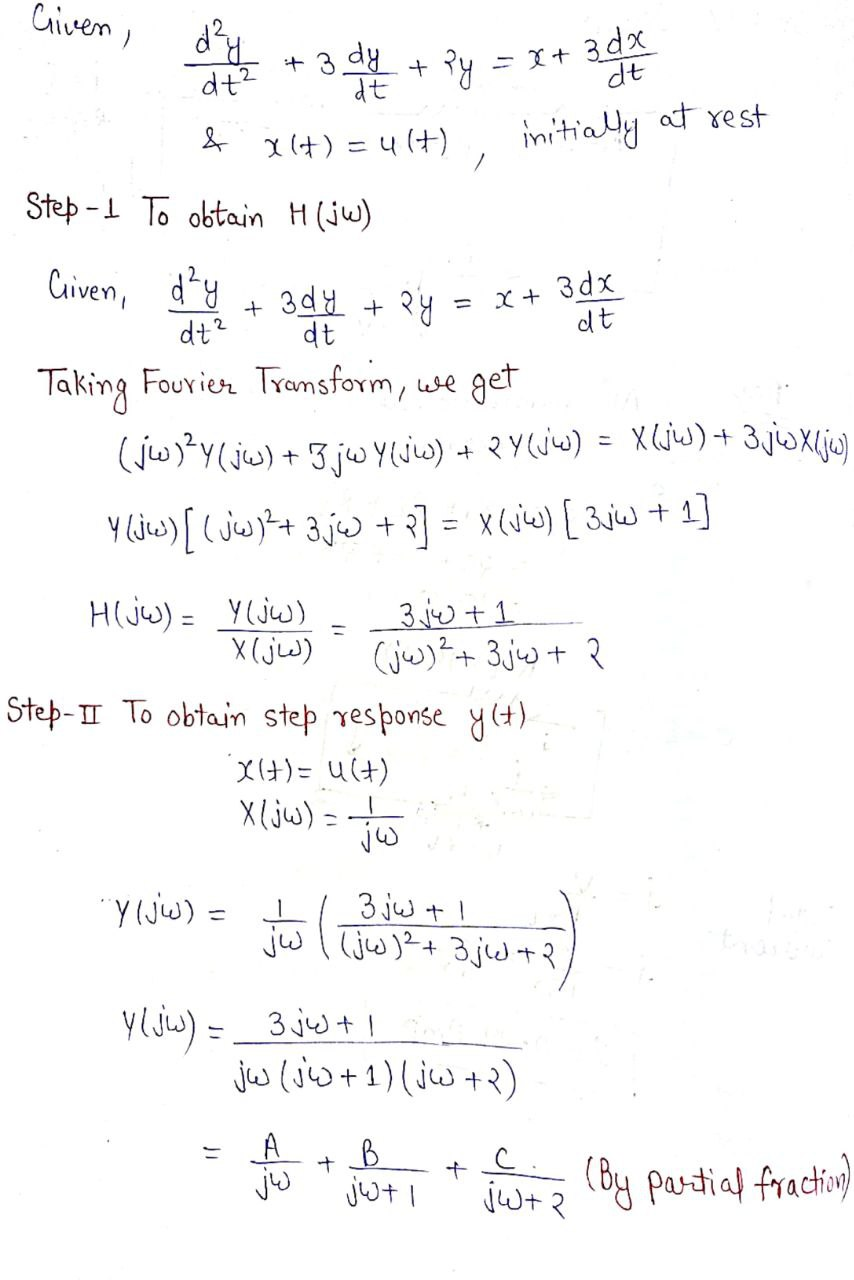 Given,
d²y/dt² + 3 dy/dt + 2y = x + 3dx/dt
& x(t) = u(t), initially at rest
Step-1 To obtain H(jω)
Given, d²y/dt² + 3dy/dt + 2y = x + 3dx/dt
Taking Fourier Transform, we get
(jω)²Y(jω) + 3jωY(jω) + 2Y(jω) = X(jω) + 3jωX(jω)
Y(jω)[(jω)² + 3jω + 2] = X(jω)[3jω + 1]
H(jω) = Y(jω)/X(jω) = (3jω + 1)/((jω)² + 3jω + 2)
Step-II To obtain step response y(t)
x(t) = u(t)
X(jω) = 1/jω
Y(jω) = 1/jω ((3jω + 1)/((jω)² + 3jω + 2))
Y(jω) = (3jω + 1)/(jω(jω + 1)(jω + 2))
= A/jω + B/(jω + 1) + C/(jω + 2) (By partial fraction)